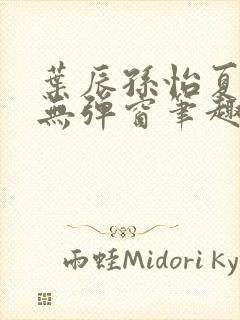 葉辰孫怡夏
無彈窗筆趣
雨蛙Midori Ky